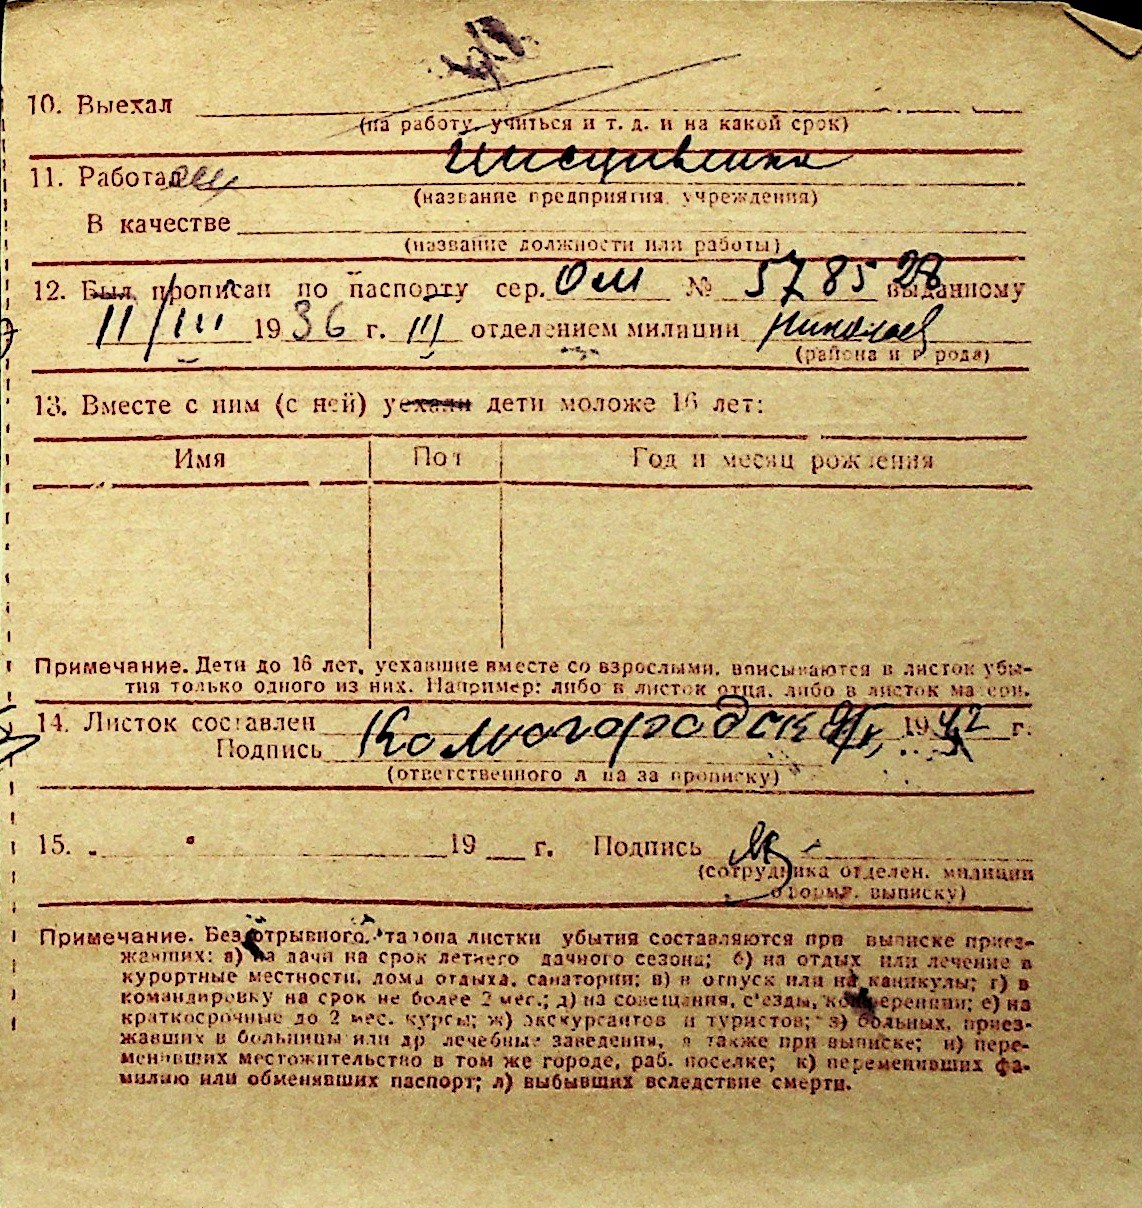 10. Выехал
(на работу, учиться и т. д. и на какой срок)
11. Работает иждивенка
(название предприятия, учреждения)
В качестве
(название должности или работы)
12. Был прописан по паспорту сер. ОМ № 578528 выданному
11/III 1936 г. III отделением милиции Николаев
(района и города)
13. Вместе с ним (с ней) уехали дети моложе 16 лет:
Имя Пол Год и месяц рождения
Примечание. Дети до 16 лет, уехавшие вместе со взрослыми, вписываются в листок убы-
тия только одного из них. Например: либо в листок отца, либо в листок матери.
14. Листок составлен 1942 г.
Подпись
(ответственного лица за прописку)
15. 19 г. Подпись
(сотрудника отделен. милиции
оформ. выписку)
Примечание. Без отрывного талона листки убытия составляются при выписке приез-
жавших: а) на дачи на срок летнего дачного сезона; б) на отдых или лечение в
курортные местности, дома отдыха, санатории; в) в отпуск или на каникулы; г) в
командировку на срок не более 2 мес.; д) на совещания, с'езды, конференции; е) на
краткосрочные до 2 мес. курсы; ж) экскурсантов и туристов; з) больных, приез-
жавших в больницы или др лечебные заведения, а также при выписке; и) пере-
менивших местожительство в том же городе, раб. поселке; к) переменивших фа-
милию или обменявших паспорт; л) выбывших вследствие смерти.